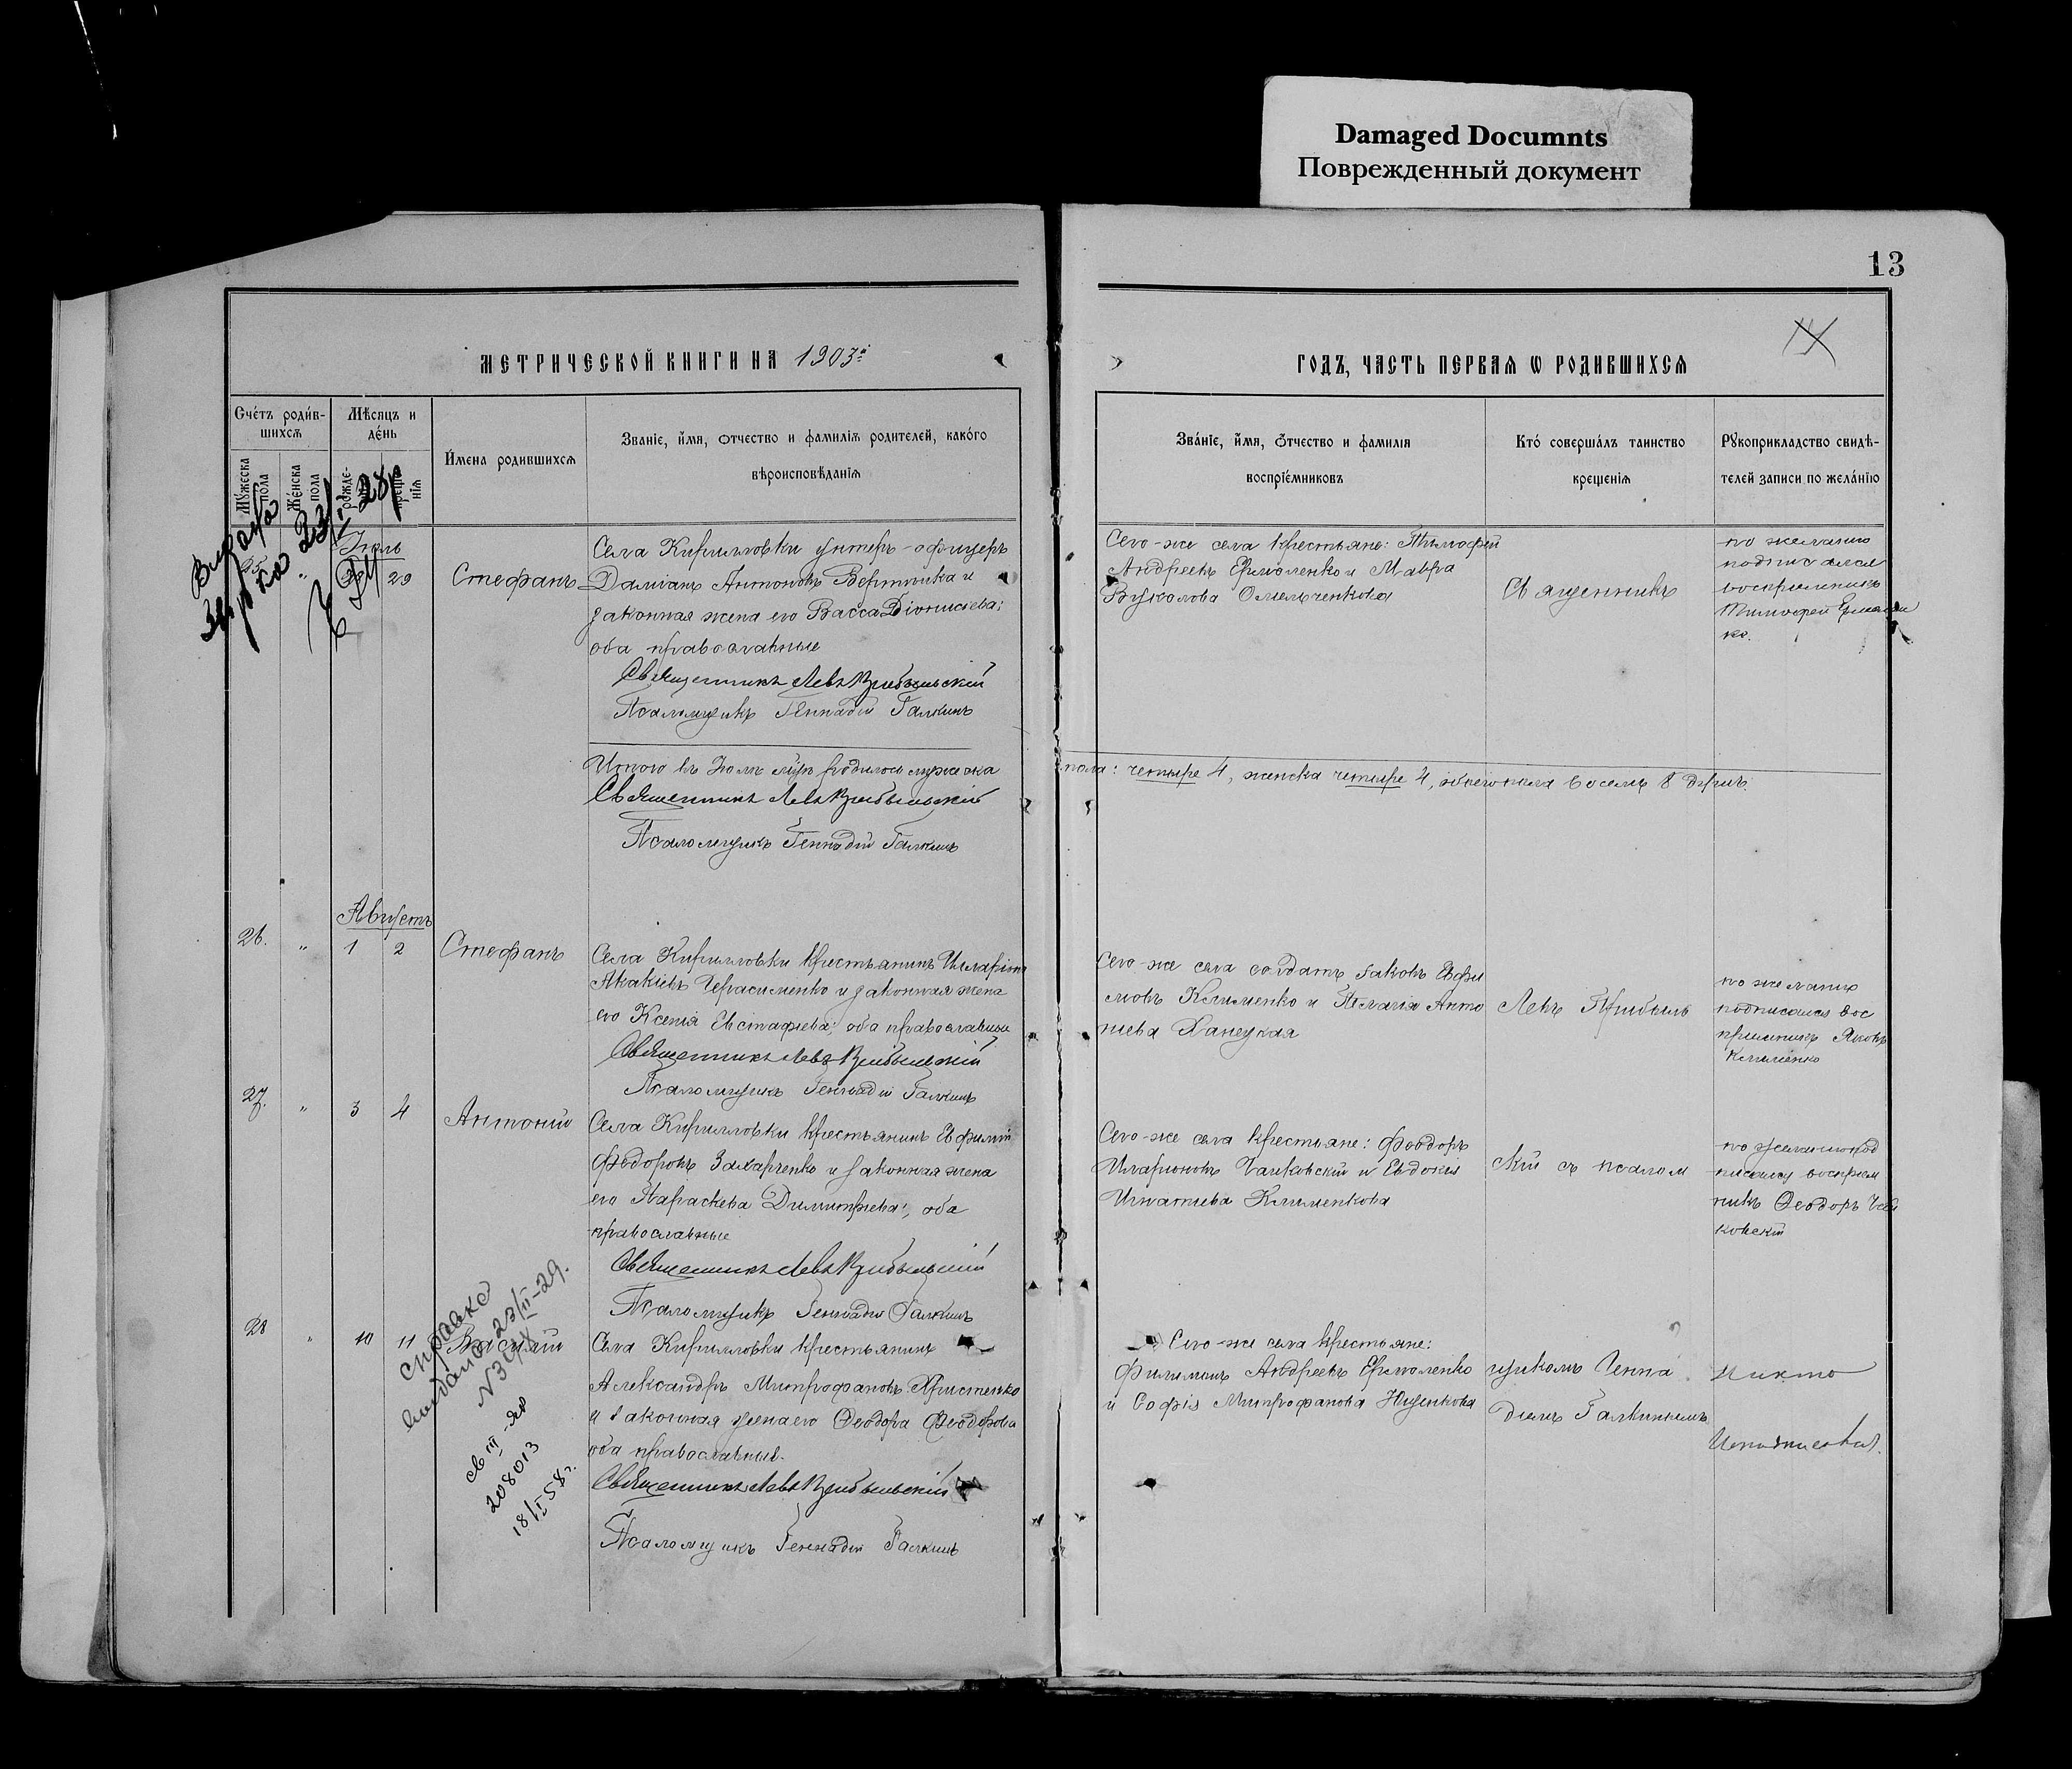 Damaged Documnts
Поврежденный документ
13
МЕТРИЧЕСКОЙ КНИГИ НА 1903й
ГОДЪ, ЧАСТЬ ПЕРВАЯ Ѡ РОДИВШИХСЯ
Счéтъ роди́в-
шихся
Мѣсяцъ и
дéнь
Мꙋ́жеска пола
Же́нска пола
И́мена родившихся
Званіе, и́мя, отчество и фамилія родителей, како́го
вѣроисповѣданія
Зва́ніе, и́мя, ѻтчество и фамилія
воспріе́мниковъ
Кто́ соверша́лъ таинство
крещенія
Рꙋкоприкладство свидѣ-
телей записи по жела́нію
Іюль
29
Стефанъ
Села Кирилловки унтеръ-офицеръ
Даміанъ Антоновъ и
законная жена его Васса Діонисіева;
оба православные
Священникъ Левъ Прибыльскій
Псаломщикъ Геннадій Галкинъ
Сего-же села крестьяне: Тимофей
Андреевъ Ермоленко и Мавра
Вуколова Омельченкова
Священникъ
по желанію
подписался
воспріемникъ
Тимофей Ермолен
ко.
Итого въ Іюлѣ мцѣ родилось мужеска
пола: четыре 4, женска четыре 4, обоего пола восемь 8 душъ.
Священникъ Левъ Прибыльскій
Псаломщикъ Геннадій Галкинъ
Августъ
26. " 1 2 Стефанъ
Села Кирилловки крестьянинъ Илларіонъ
Акакіевъ Герасименко и законная жена
его Ксенія Евстафіева; оба православные
Священникъ Левъ Прибыльскій
Псаломщикъ Геннадій Галкинъ
Сего-же села солдатъ Іаковъ Евфи
мовъ Клименко и Пелагія Анто
ніева Ханецкая
Левъ Прибыль
по желанію
подписался вос
пріемникъ Яковъ
Клименко
27. " 3 4 Антоній
Села Кирилловки крестьянинъ Евфимій
Федоровъ Захарченко и законная жена
его Параскева Димитріева; оба
православные
Священникъ Левъ Прибыльскій
Псаломщикъ Геннадій Галкинъ
Сего-же села крестьяне: Феодоръ
Иларіоновъ Чайковскій и Евдокія
Игнатіева Клименкова
скій съ псалом
по желанію под
писался воспріем
никъ Феодоръ Чай
ковскій
28 " 10 11 Василій
Села Кирилловки крестьянинъ
Александръ Митрофановъ Христенко
и законная жена его Феодора Феодорова
оба православные.
Священникъ Левъ Прибыльскій
Псаломщикъ Геннадій Галкинъ
Сего-же села крестьяне:
Филимонъ Андреевъ Ермоленко
и Софія Митрофанова Ищенкова
щикомъ Генна
діемъ Галкинымъ
Никто
справка
выдана 23/II-29.
св III-ЯЯ
208013
18/I 58г.